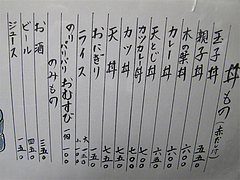 丼もの（赤だし付）
玉子丼 五〇〇
親子丼 五五〇
木の葉丼 六〇〇
カレー 六〇〇
天とじ丼 六五〇
カツカレー丼 七五〇
カツ丼 七〇〇
天丼 七〇〇
おにぎり 一五〇
ライス
のりパリパリおむすび 一個 一〇〇
のみもの
お酒 三五〇
ビール 四五〇
ジュース 一五〇